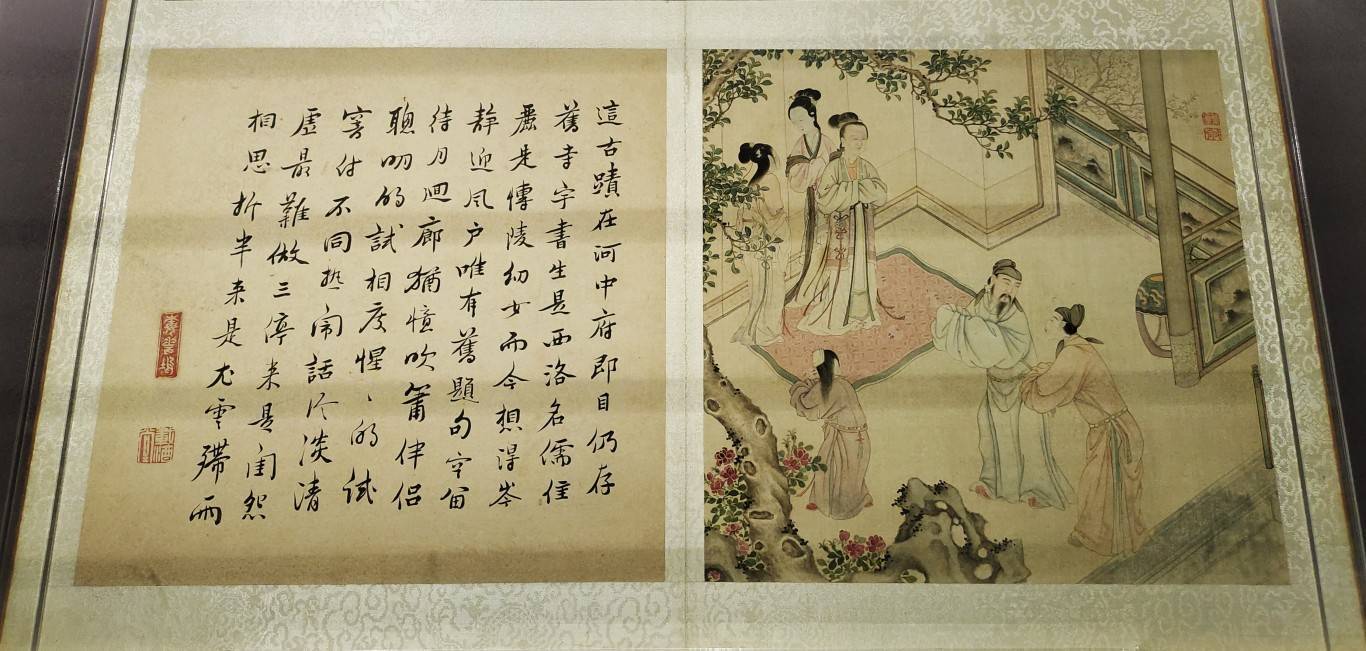 這古蹟在河中府即目仍存
舊寺宇書生是西洛名儒佳
麗是博陵幼女而今想得岑
靜迎風户唯有舊題句空留
待月迴廊猶憶吹簫伴侶
聰明的試相度惺〻的試
窨付不同熱鬧話冷淡清
虛最難做三停来是閨怨
相思折半来是尤雲殢雨